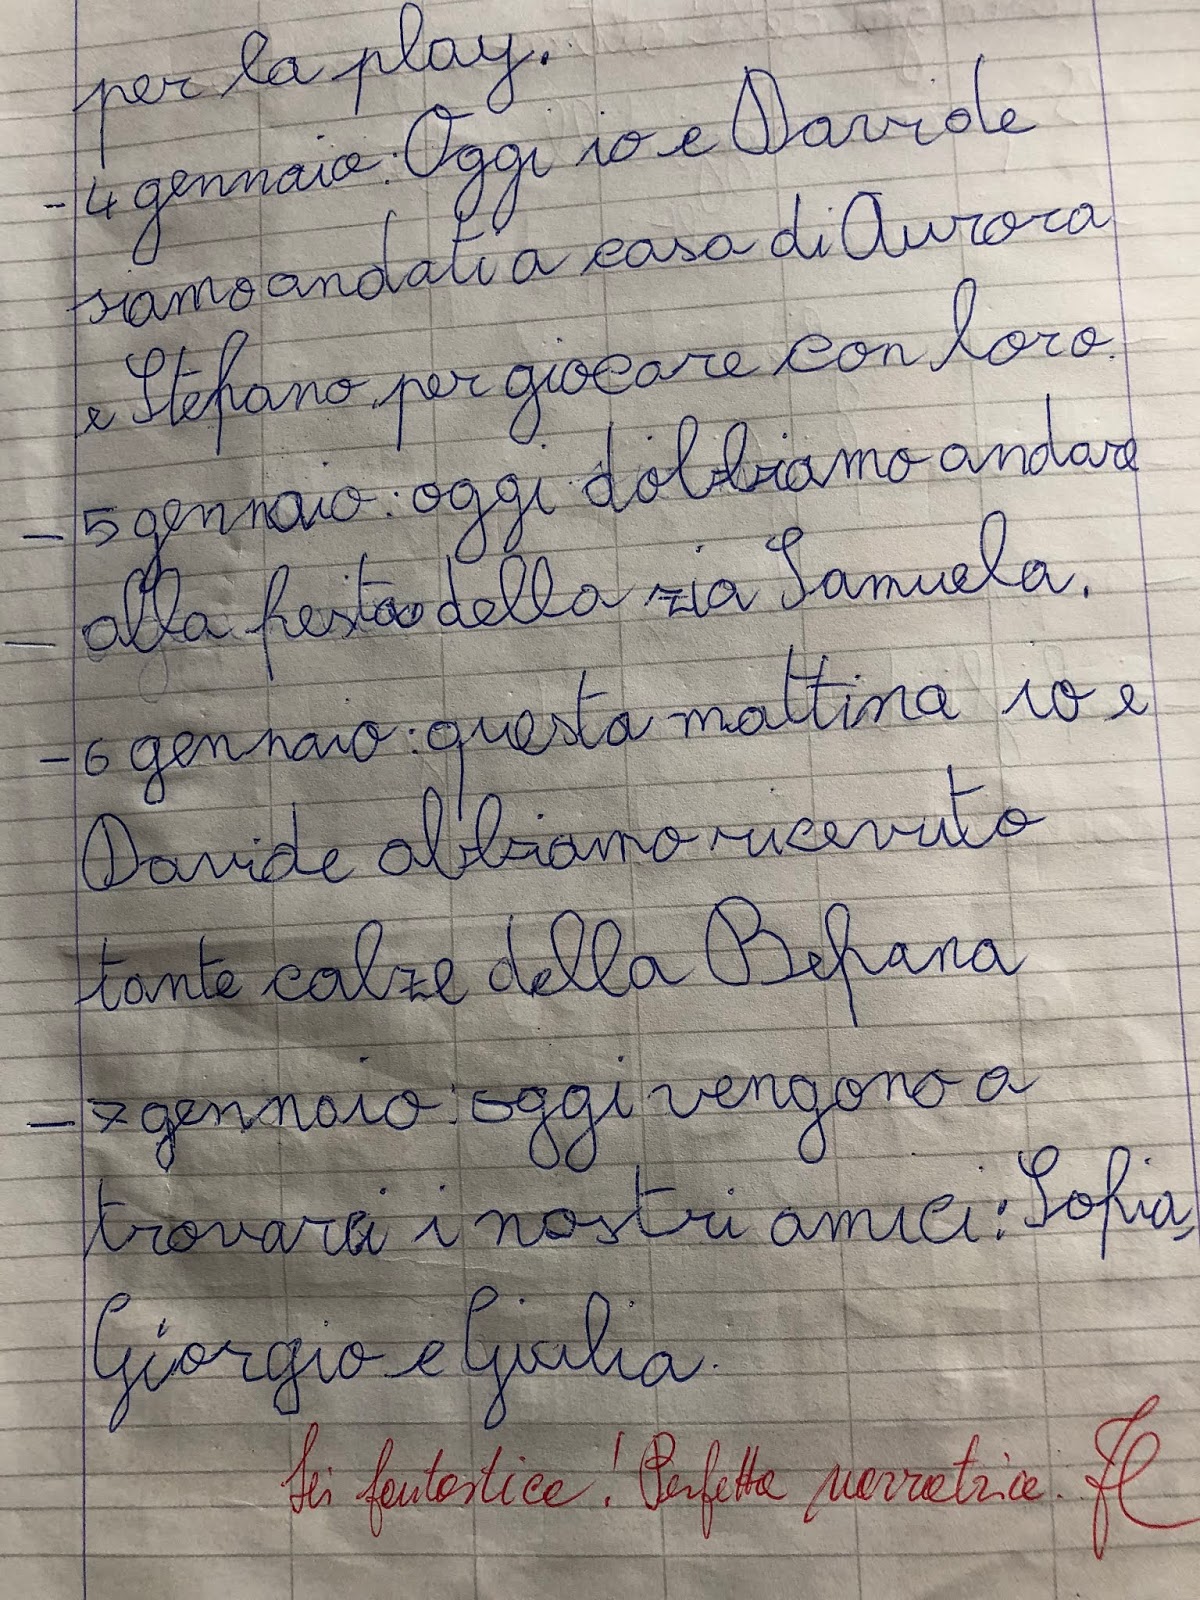 per la play.
- 4 gennaio: Oggi io e Davide
siamo andati a casa di Aurora
e Stefano, per giocare con loro.
- 5 gennaio: oggi dobbiamo andare
- alla festa della zia Samuela.
- 6 gennaio: questa mattina io e
Davide abbiamo ricevuto
tante calze della Befana
- 7 gennaio: oggi vengono a
trovarci i nostri amici: Sofia,
Giorgio e Giulia.
Sei fantastica! Perfetta narratrice.